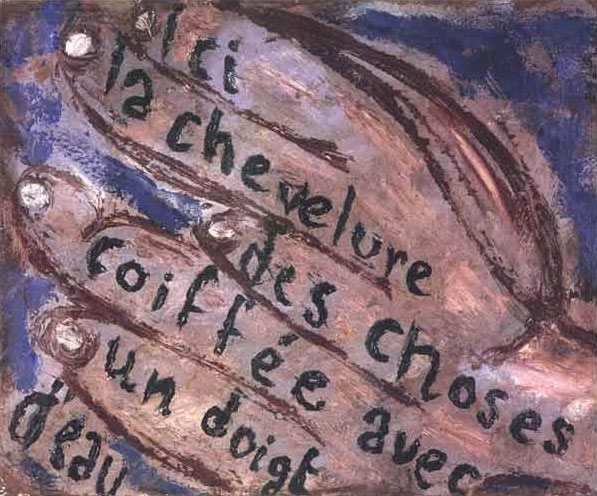 Ici
la chevelure
des choses
coiffée avec
un doigt
d'eau